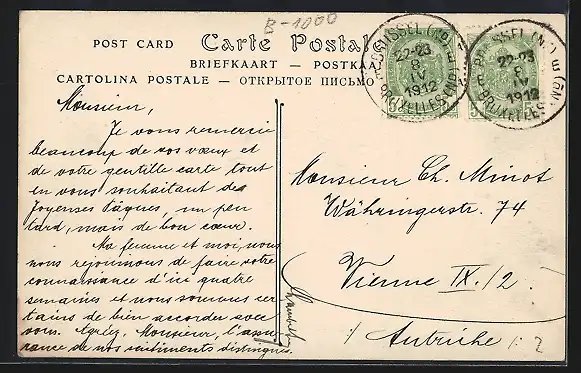 B-1000
POST CARD Carte Postale
BRIEFKAART — POSTKAA
CARTOLINA POSTALE — ОТКРЫТОЕ ПИСЬМО
BRUSSEL (NO)
22-23
8
IV
1912
BRUXELLES (NO)
BRUSSEL (NO)
22-23
8
IV
1912
BRUXELLES (NO)
Monsieur,
Je vous remercie
beaucoup de vos vœux et
de votre gentille carte tout
en vous souhaitant des
Joyeuses Pâques, un peu
tard, mais de bon cœur.
Ma femme et moi, nous
nous rejouinons de faire votre
connaissance d'ici quatre
semaines et nous sommes cer
tains de bien accorder avec
vous. Agréez, Monsieur, l'assu
rance de nos sentiments distingués.
Monsieur Ch. Minot
Währingerstr. 74
Vienne IX./2.
Autriche